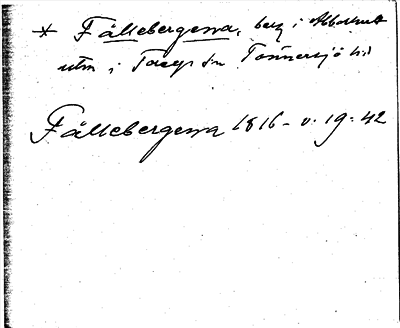 * Fällebergena, berg i Abborrås
utm i Torup sn Tönnersjö hd
Fällebergena 1816 - v. 19: 42